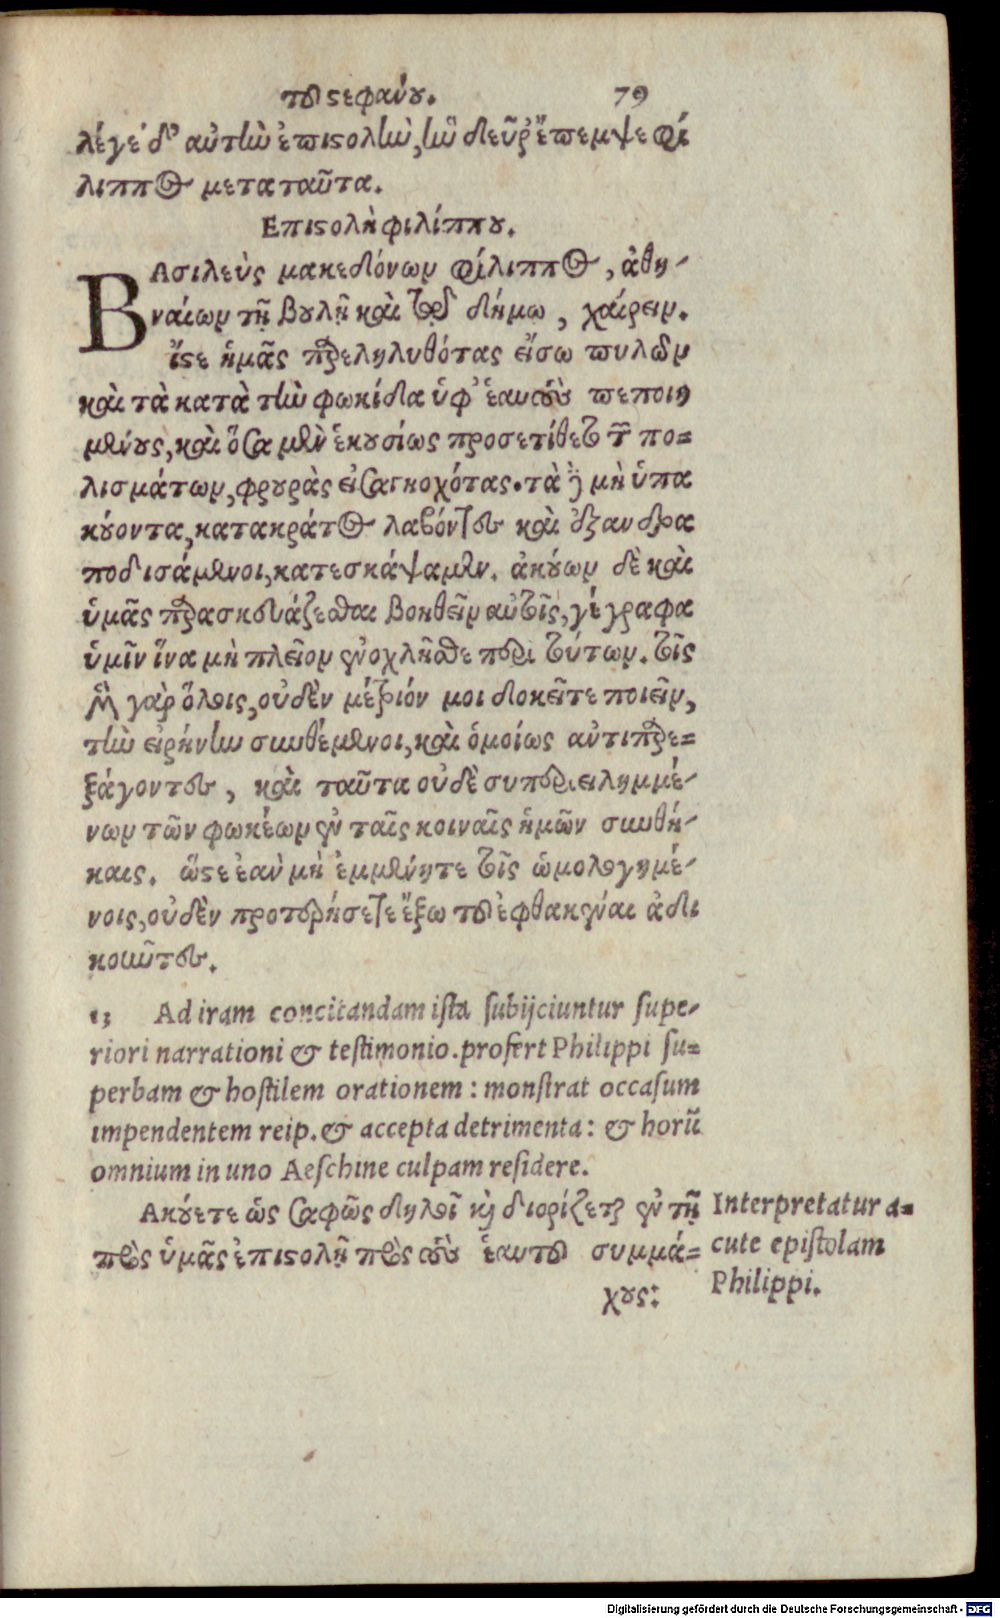 τοῦ στεφάνου. 79
λέγε δ' αὐτὴν ἐπιστολὴν, ἣν δεῦρ' ἔπεμψε φί
λιππος μετα ταῦτα.
Επιστολὴ φιλίππου.
ΒΑσιλεὺς μακεδόνων φίλιππος, ἀθη-
ναίων τῇ βουλῇ καὶ τῷ δήμω, χαίρειν.
ἴστε ἡμᾶς παρεληλυθότας εἴσω πυλῶν
καὶ τὰ κατὰ τὴν φωκίδα ὑφ' ἑαυτοὺς πεποιη
μένους, καὶ ὅσα μὲν ἑκουσίως προσετίθετο τῶν πο=
λισμάτων, φρουρὰς εἰσαγηοχότας. τὰ δὲ μὴ ὑπα
κούοντα, κατακράτος λαβόντες καὶ ἐξανδρα
ποδισάμενοι, κατεσκάψαμεν. ἀκούων δὲ καὶ
ὑμᾶς παρασκευάζεσθαι βοηθεῖν αὐτοῖς, γέγραφα
ὑμῖν ἵνα μὴ πλεῖον ἐνοχλῆσθε περὶ τούτων. τοῖς
μὲν γὰρ ὅλοις, οὐδὲν μέτριόν μοι δοκεῖτε ποιεῖν,
τὴν εἰρήνην συνθέμενοι, καὶ ὁμοίως αὐτιπαρε=
ξάγοντες, καὶ ταῦτα οὐδὲ συμπεριειλημμέ-
νων τῶν φωκέων ἐν ταῖς κοιναῖς ἡμῶν συνθή-
καις. ὥστε ἐὰν μὴ ἐμμένητε τοῖς ὡμολογημέ-
νοις, οὐδὲν προτερήσετε ἔξω τοῦ ἐφθακέναι ἀδι
κοῦντες.
13 Ad iram concitandam ista subijciuntur supe-
riori narrationi & testimonio. profert Philippi su=
perbam & hostilem orationem: monstrat occasum
impendentem reip. & accepta detrimenta: & horũ
omnium in uno Aeschine culpam residere.
Ακούετε ὡς σαφῶς δηλοῖ καὶ διορίζεται ἐν τῇ
πρὸς ὑμᾶς ἐπιστολῇ πρὸς τοὺς ἑαυτοῦ συμμά=
χους:
Interpretatur a=
cute epistolam
Philippi.
Digitalisierung gefördert durch die Deutsche Forschungsgemeinschaft - DFG